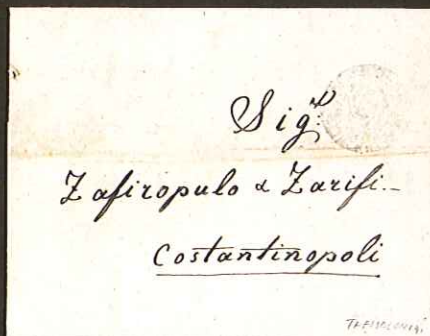 Sigri
Zafiropulo & Zarifi.-
Costantinopoli